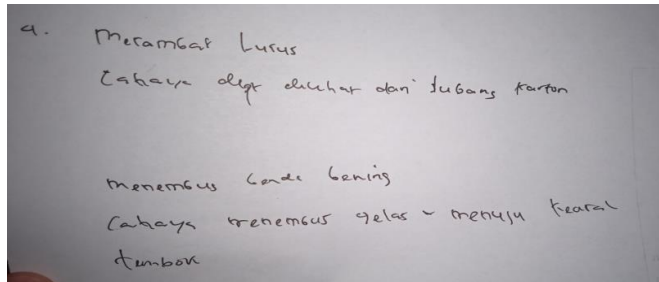 a. Merambat Lurus
Cahaya dpt dilihat dari lubang karton
menembus benda bening
Cahaya menembus gelas ~ menuju kearah
tembok